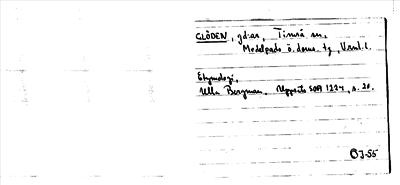 GLÖDEN, gd:ar, Timrå sn,
Medelpads ö. doms. tg, Vsml. l.
Etymologi,
Ulla Bergman, Uppsats SOFA 1224, s. 20.
BJ-55